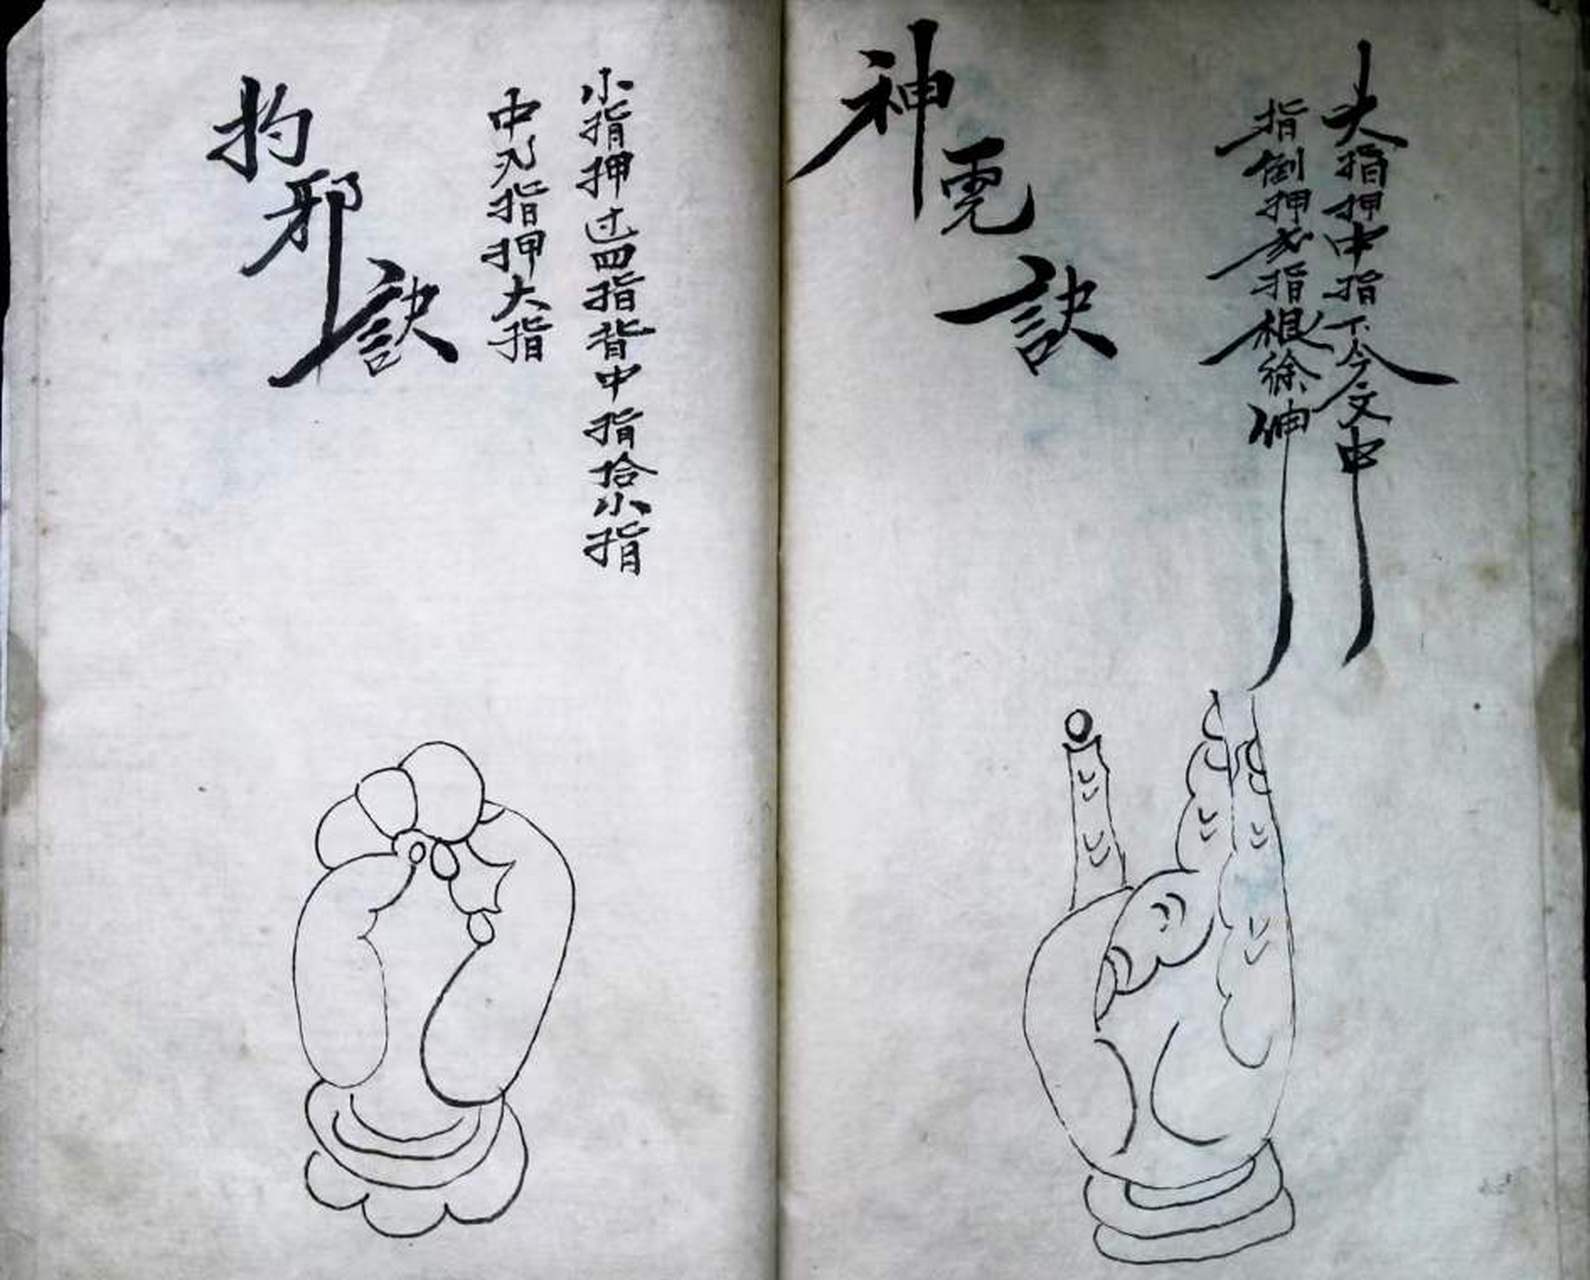 大指押中指下今文中
指倒押指根徐伸
神訣
小指押过四指背中指拾小指
中指押大指
邪訣